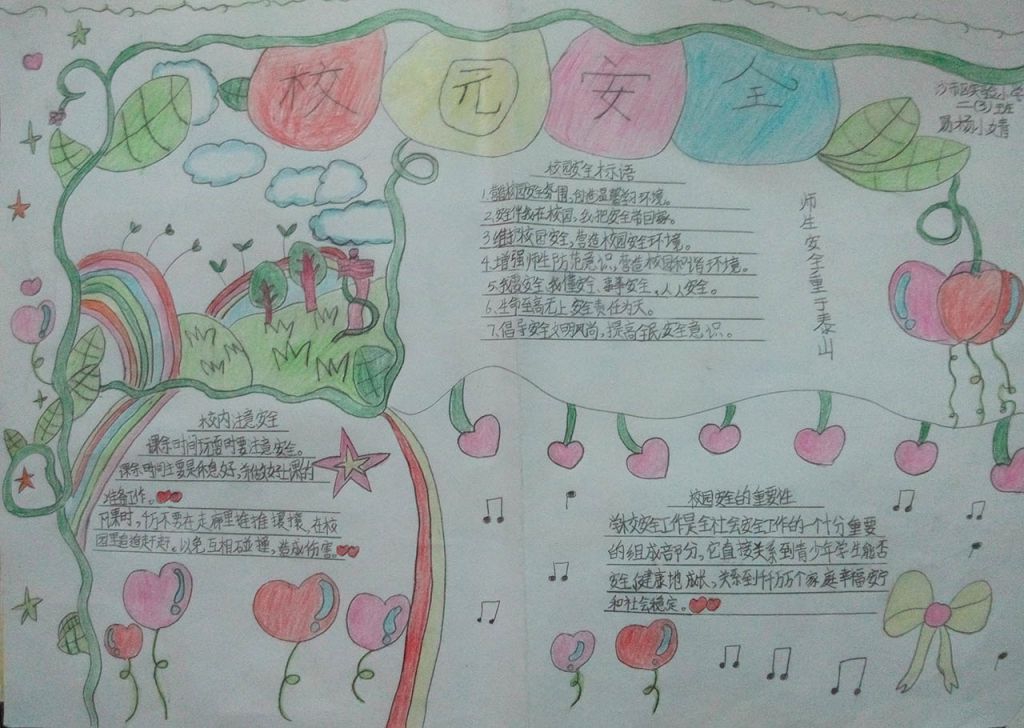 校园安全
市区实验小学
二(3)班
易杨小婧
校园安全标语
1.营校园安全氛围,创造温馨学习环境。
2.安全伴我在校园,我把安全带回家。
3.维护校园安全,营造校园安全环境。
4.增强师生防范意识,营造校园和谐环境。
5.我要安全,我懂安全,事事安全,人人安全。
6.生命至高无上,安全责任为天。
7.倡导安全文明风尚,提高全民安全意识。
师生安全重于泰山
校内注意安全
课余时间玩耍时要注意安全。
课余时间主要是休息好,和做好上课的
准备工作。
下课时,千万不要在走廊里碰推
园里追追赶赶。以免互相碰撞,造成伤害。
校园安全的重要性
学校安全工作是全社会安全工作的一个十分重要
的组成部分,它直接关系到青少年学生能否
安全、健康地成长,关系到千千万万个家庭幸福安宁
和社会稳定。